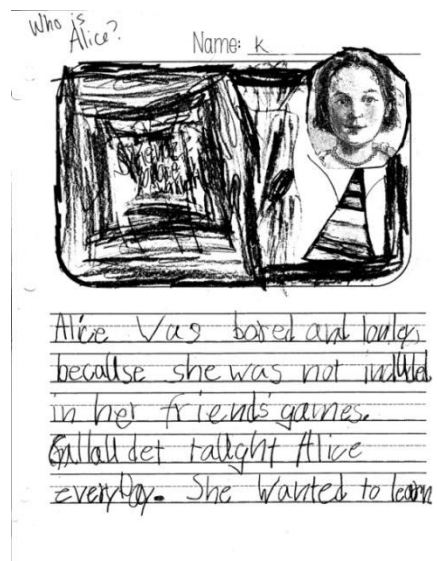 Who is
Alice?
Name: K
Alice Was bored and lonley
because she was not included
in her friends' games.
Gallaudet taught Alice
everyDay. She Wanted to learn